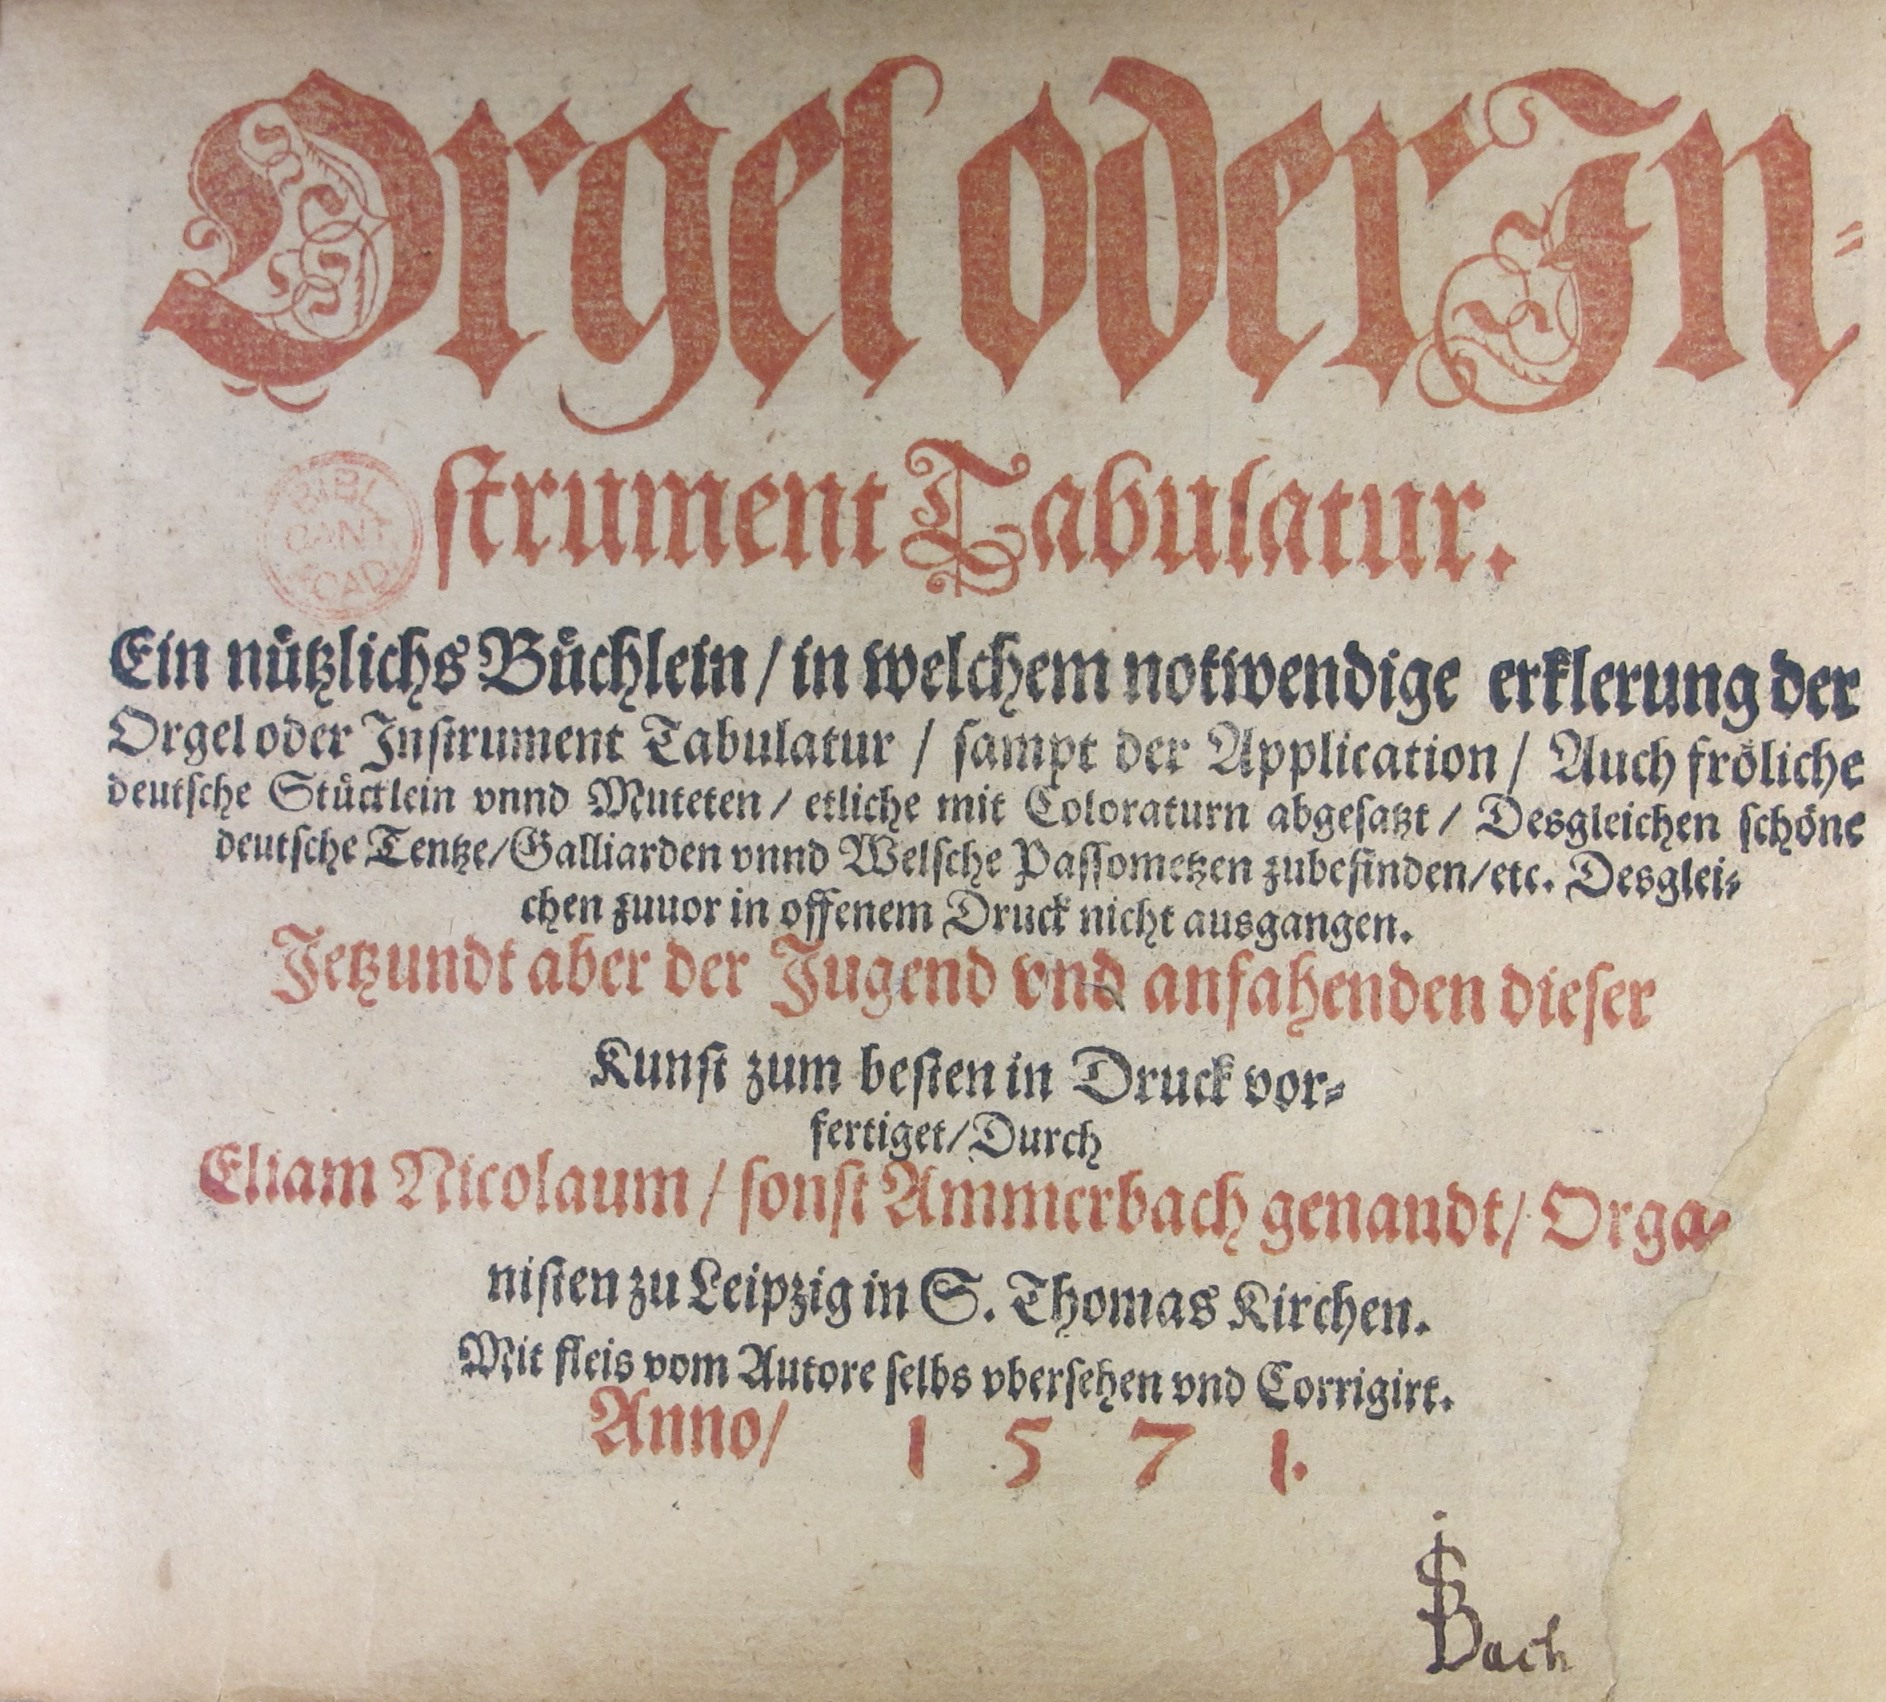 Orgel oder In-
strument Tabulatur.
BIBL
CANT
CAD
Ein nuͤtzlichs Buͤchlein / in welchem notwendige erklerung der
Orgel oder Instrument Tabulatur / sampt der Application / Auch froͤliche
deutsche Stuͤcklein vnnd Muteten / etliche mit Coloraturn abgesatzt / Desgleichen schoͤne
deutsche Tentze/Galliarden vnnd Welsche Passometzen zubefinden/etc. Desglei-
chen zuuor in offenem Druck nicht ausgangen.
Jetzundt aber der Jugend vnd anfahenden dieser
Kunst zum besten in Druck vor-
fertiget/Durch
Eliam Nicolaum / sonst Ammerbach genandt/ Orga-
nisten zu Leipzig in S. Thomas Kirchen.
Mit fleis vom Autore selbs vbersehen vnd Corrigirt.
Anno/ 1571.
iS
Bach